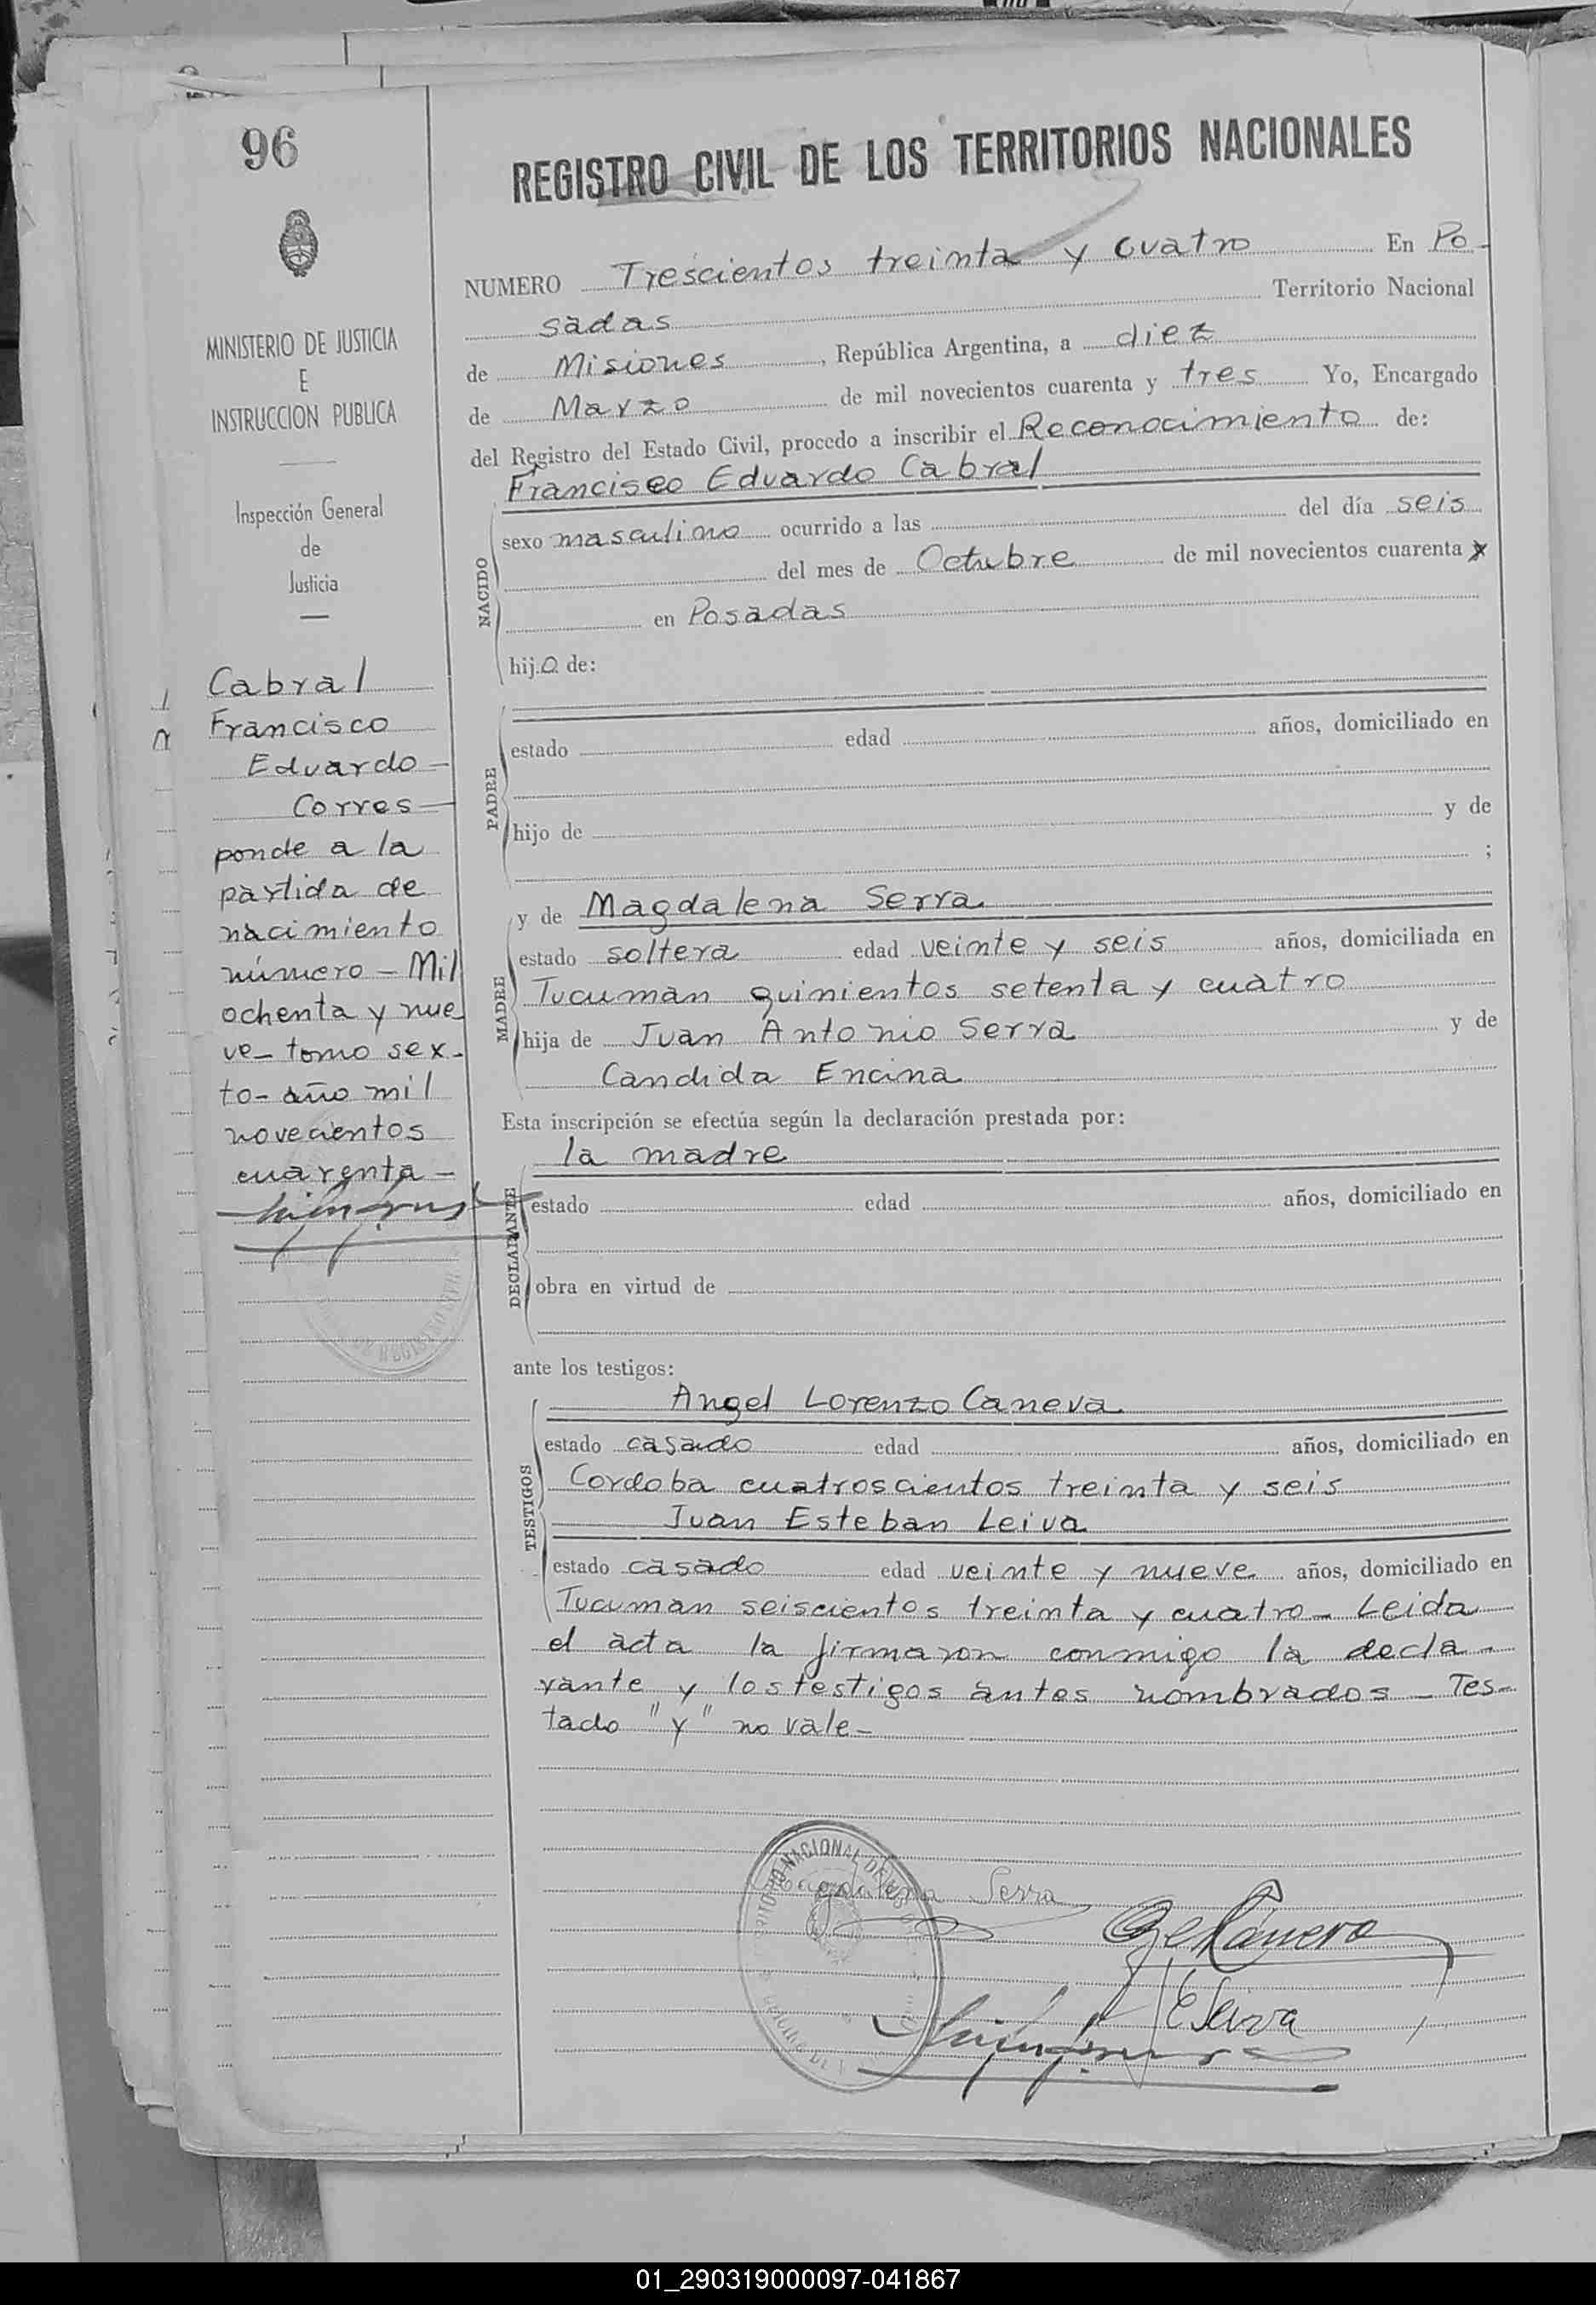 96
MINISTERIO DE JUSTICIA
E
INSTRUCCION PUBLICA
Inspección General
de
Justicia
Cabral
Francisco
Eduardo -
Corres -
ponde a la
partida de
nacimiento
número - Mil
ochenta y nue
ve - tomo sex-
to - año mil
novecientos
cuarenta -
REGISTRO CIVIL DE LOS TERRITORIOS NACIONALES
NUMERO Trescientos treinta y cuatro En Po-
sadas Territorio Nacional
de Misiones, República Argentina, a diez
de Marzo de mil novecientos cuarenta y tres Yo, Encargado
del Registro del Estado Civil, procedo a inscribir el Reconocimiento de:
Francisco Eduardo Cabral
NACIDO
sexo masculino ocurrido a las del día seis
del mes de Octubre de mil novecientos cuarenta y
en Posadas
hijo de:
PADRE
estado edad años, domiciliado en
hijo de y de
;
MADRE
y de Magdalena Serra
estado soltera edad veinte y seis años, domiciliada en
Tucuman quinientos setenta y cuatro
hija de Juan Antonio Serra y de
Candida Encina
Esta inscripción se efectúa según la declaración prestada por:
la madre
DECLARANTE
estado edad años, domiciliado en
obra en virtud de
ante los testigos:
TESTIGOS
Angel Lorenzo Caneva
estado casado edad años, domiciliado en
Cordoba cuatroscientos treinta y seis
Juan Esteban Leiva
estado casado edad veinte y nueve años, domiciliado en
Tucuman seiscientos treinta y cuatro - Leida
el acta la firmaron conmigo la decla-
rante y los testigos antes nombrados - Tes-
tado "y" no vale -
Magdalena Serra
Caneva
JELeiva
01_290319000097-041867